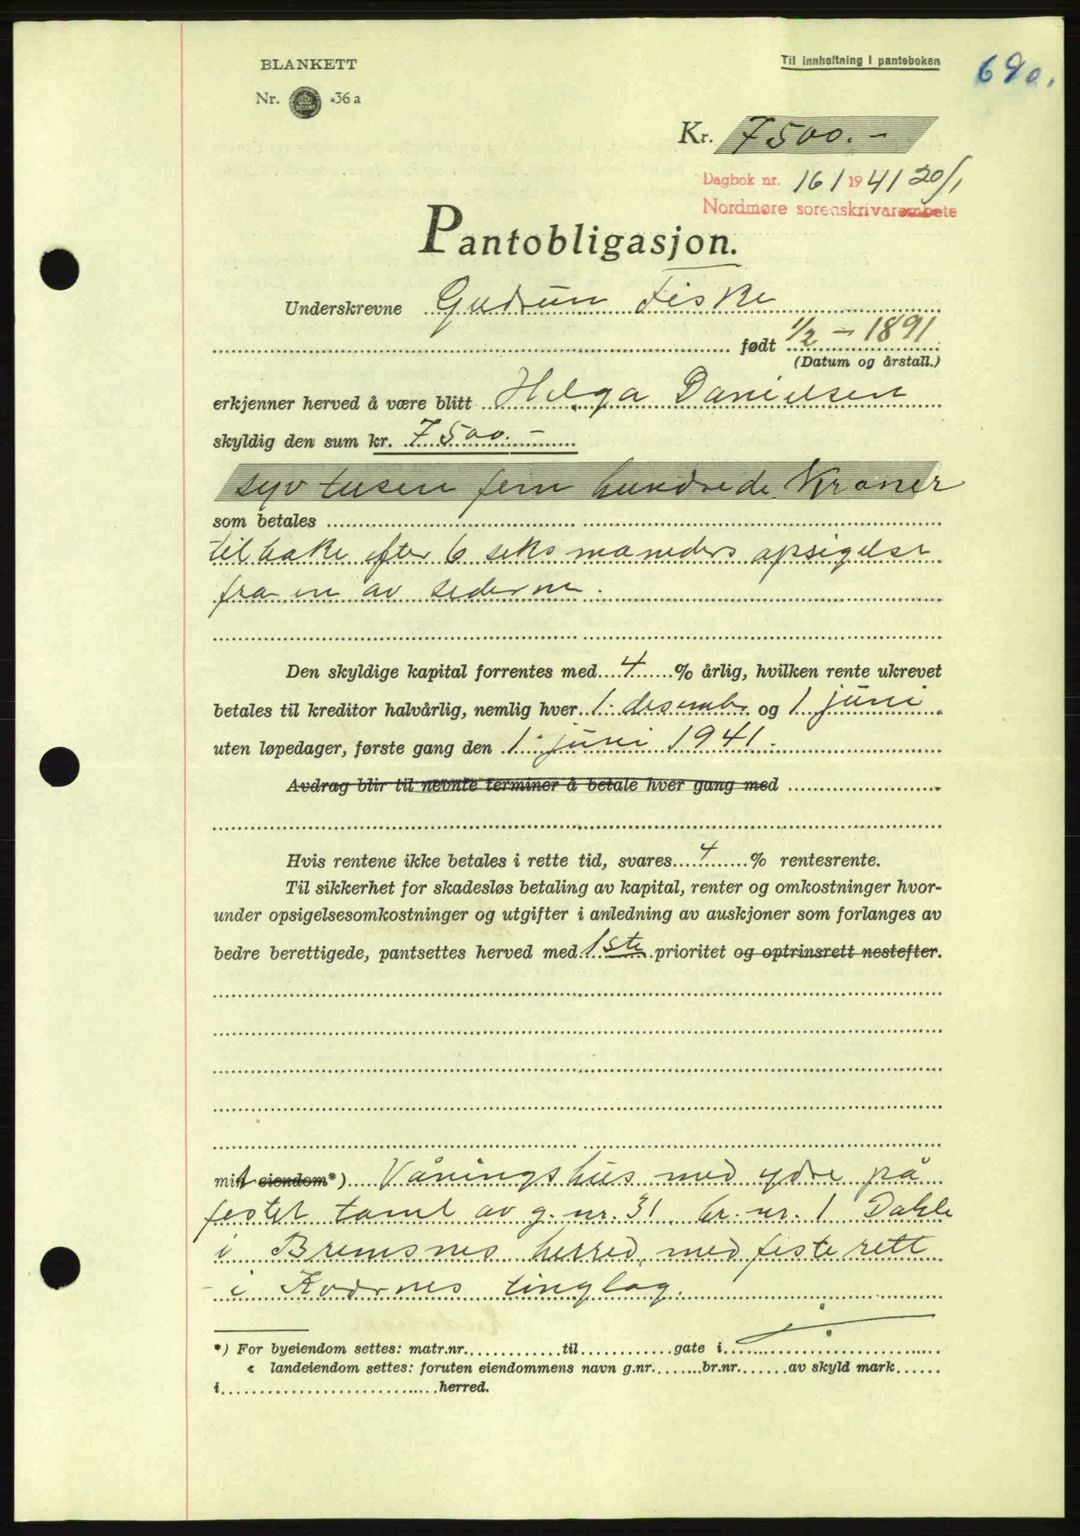 BLANKETT
Til innheftning i panteboken
690.
Nr. 36a
Kr. 7500.-
Dagbok nr. 161 1941 20/1
Nordmøre sorenskrivarembete
Pantobligasjon.
Underskrevne Gudrun Fiske
født 1/2 - 1891
(Datum og årstall.)
erkjenner herved å være blitt Helga Danielsen
skyldig den sum kr. 7500.-
syv tusen fem hundrede Kroner
som betales
tilbake efter 6 seks maneders opsigelse
fra en av siderne.
Den skyldige kapital forrentes med 4 % årlig, hvilken rente ukrevet
betales til kreditor halvårlig, nemlig hver 1. desembr. og 1 juni
uten løpedager, første gang den 1. juni 1941.
Avdrag blir til nevnte terminer å betale hver gang med
Hvis rentene ikke betales i rette tid, svares 4 % rentesrente.
Til sikkerhet for skadesløs betaling av kapital, renter og omkostninger hvor-
under opsigelsesomkostninger og utgifter i anledning av auskjoner som forlanges av
bedre berettigede, pantsettes herved med 1ste prioritet og optrinsrett nestefter.
mit eiendom*) Våningshus med ydre på
festet tomt av g. nr. 31 br. nr. 1 Dahle
i Bremsnes herred, med feste rett
i Kvernes tinglag.
*) For byeiendom settes: matr.nr. til gate i
« landeiendom settes: foruten eiendommens navn g.nr. br.nr. av skyld mark
i herred.